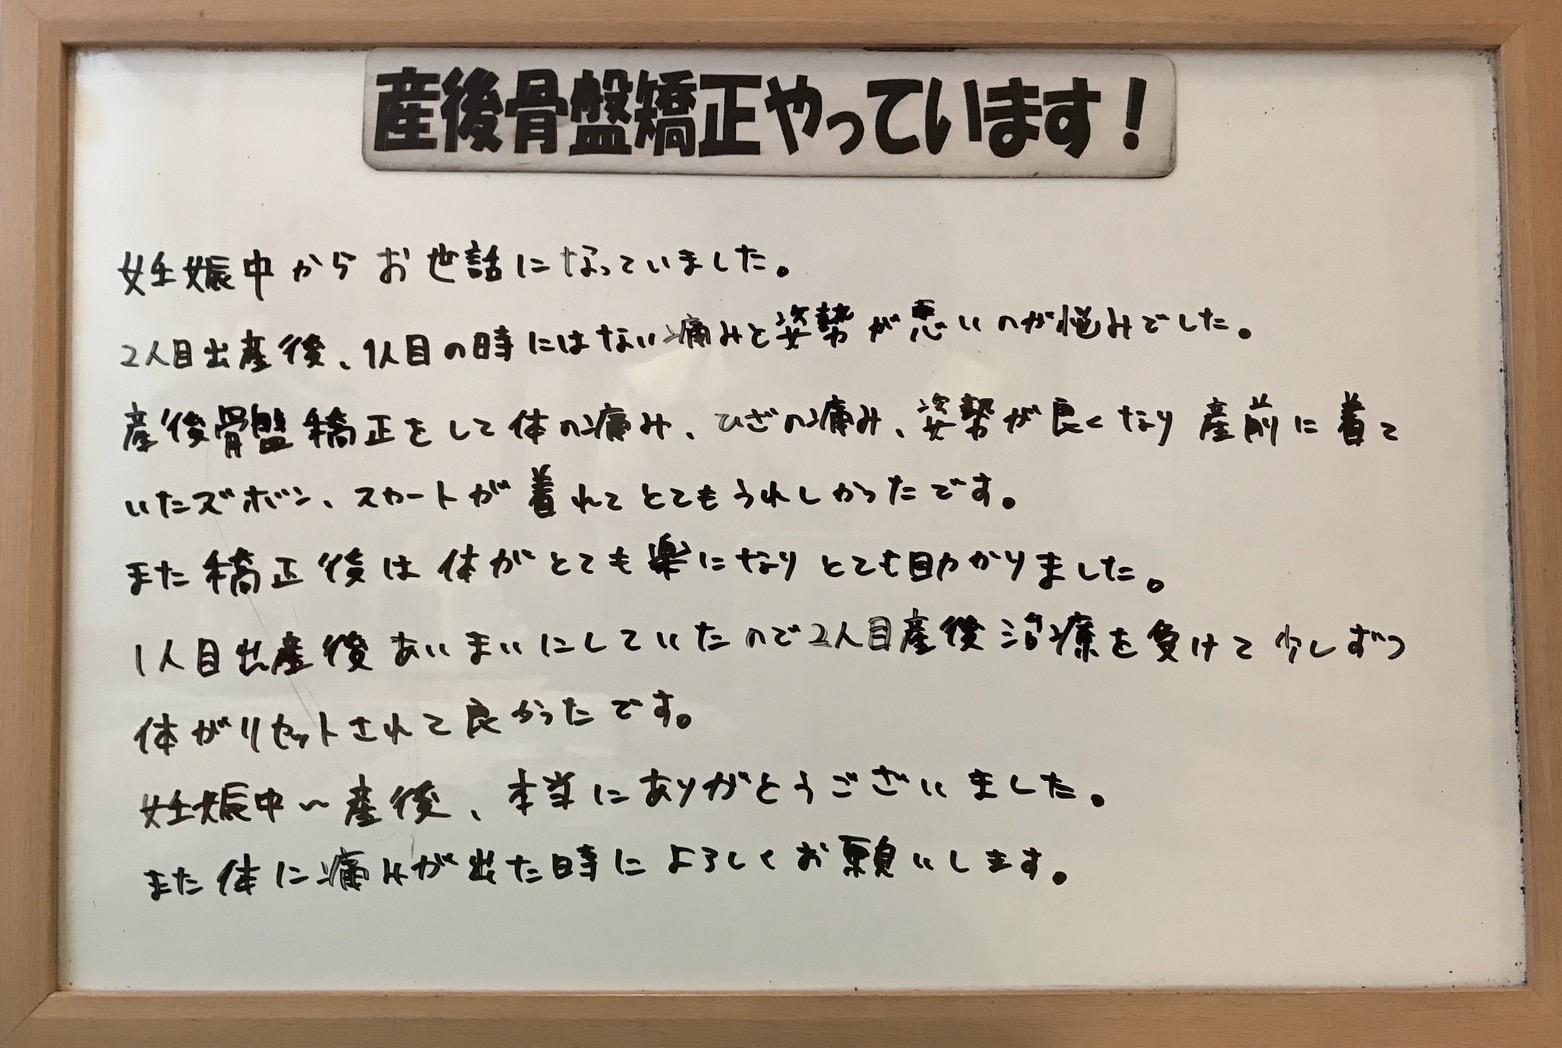 産後骨盤矯正やっています！
妊娠中からお世話になっていました。
2人目出産後、1人目の時にはない痛みと姿勢が悪いのが悩みでした。
産後骨盤矯正をして体の痛み、ひざの痛み、姿勢が良くなり産前に着て
いたズボン、スカートが着れてとてもうれしかったです。
また矯正後は体がとても楽になりとても助かりました。
1人目出産後あいまいにしていたので2人目産後治療を負けて少しずつ
体がリセットされて良かったです。
妊娠中〜産後、本当にありがとうございました。
また体に痛みが出た時によろしくお願いします。